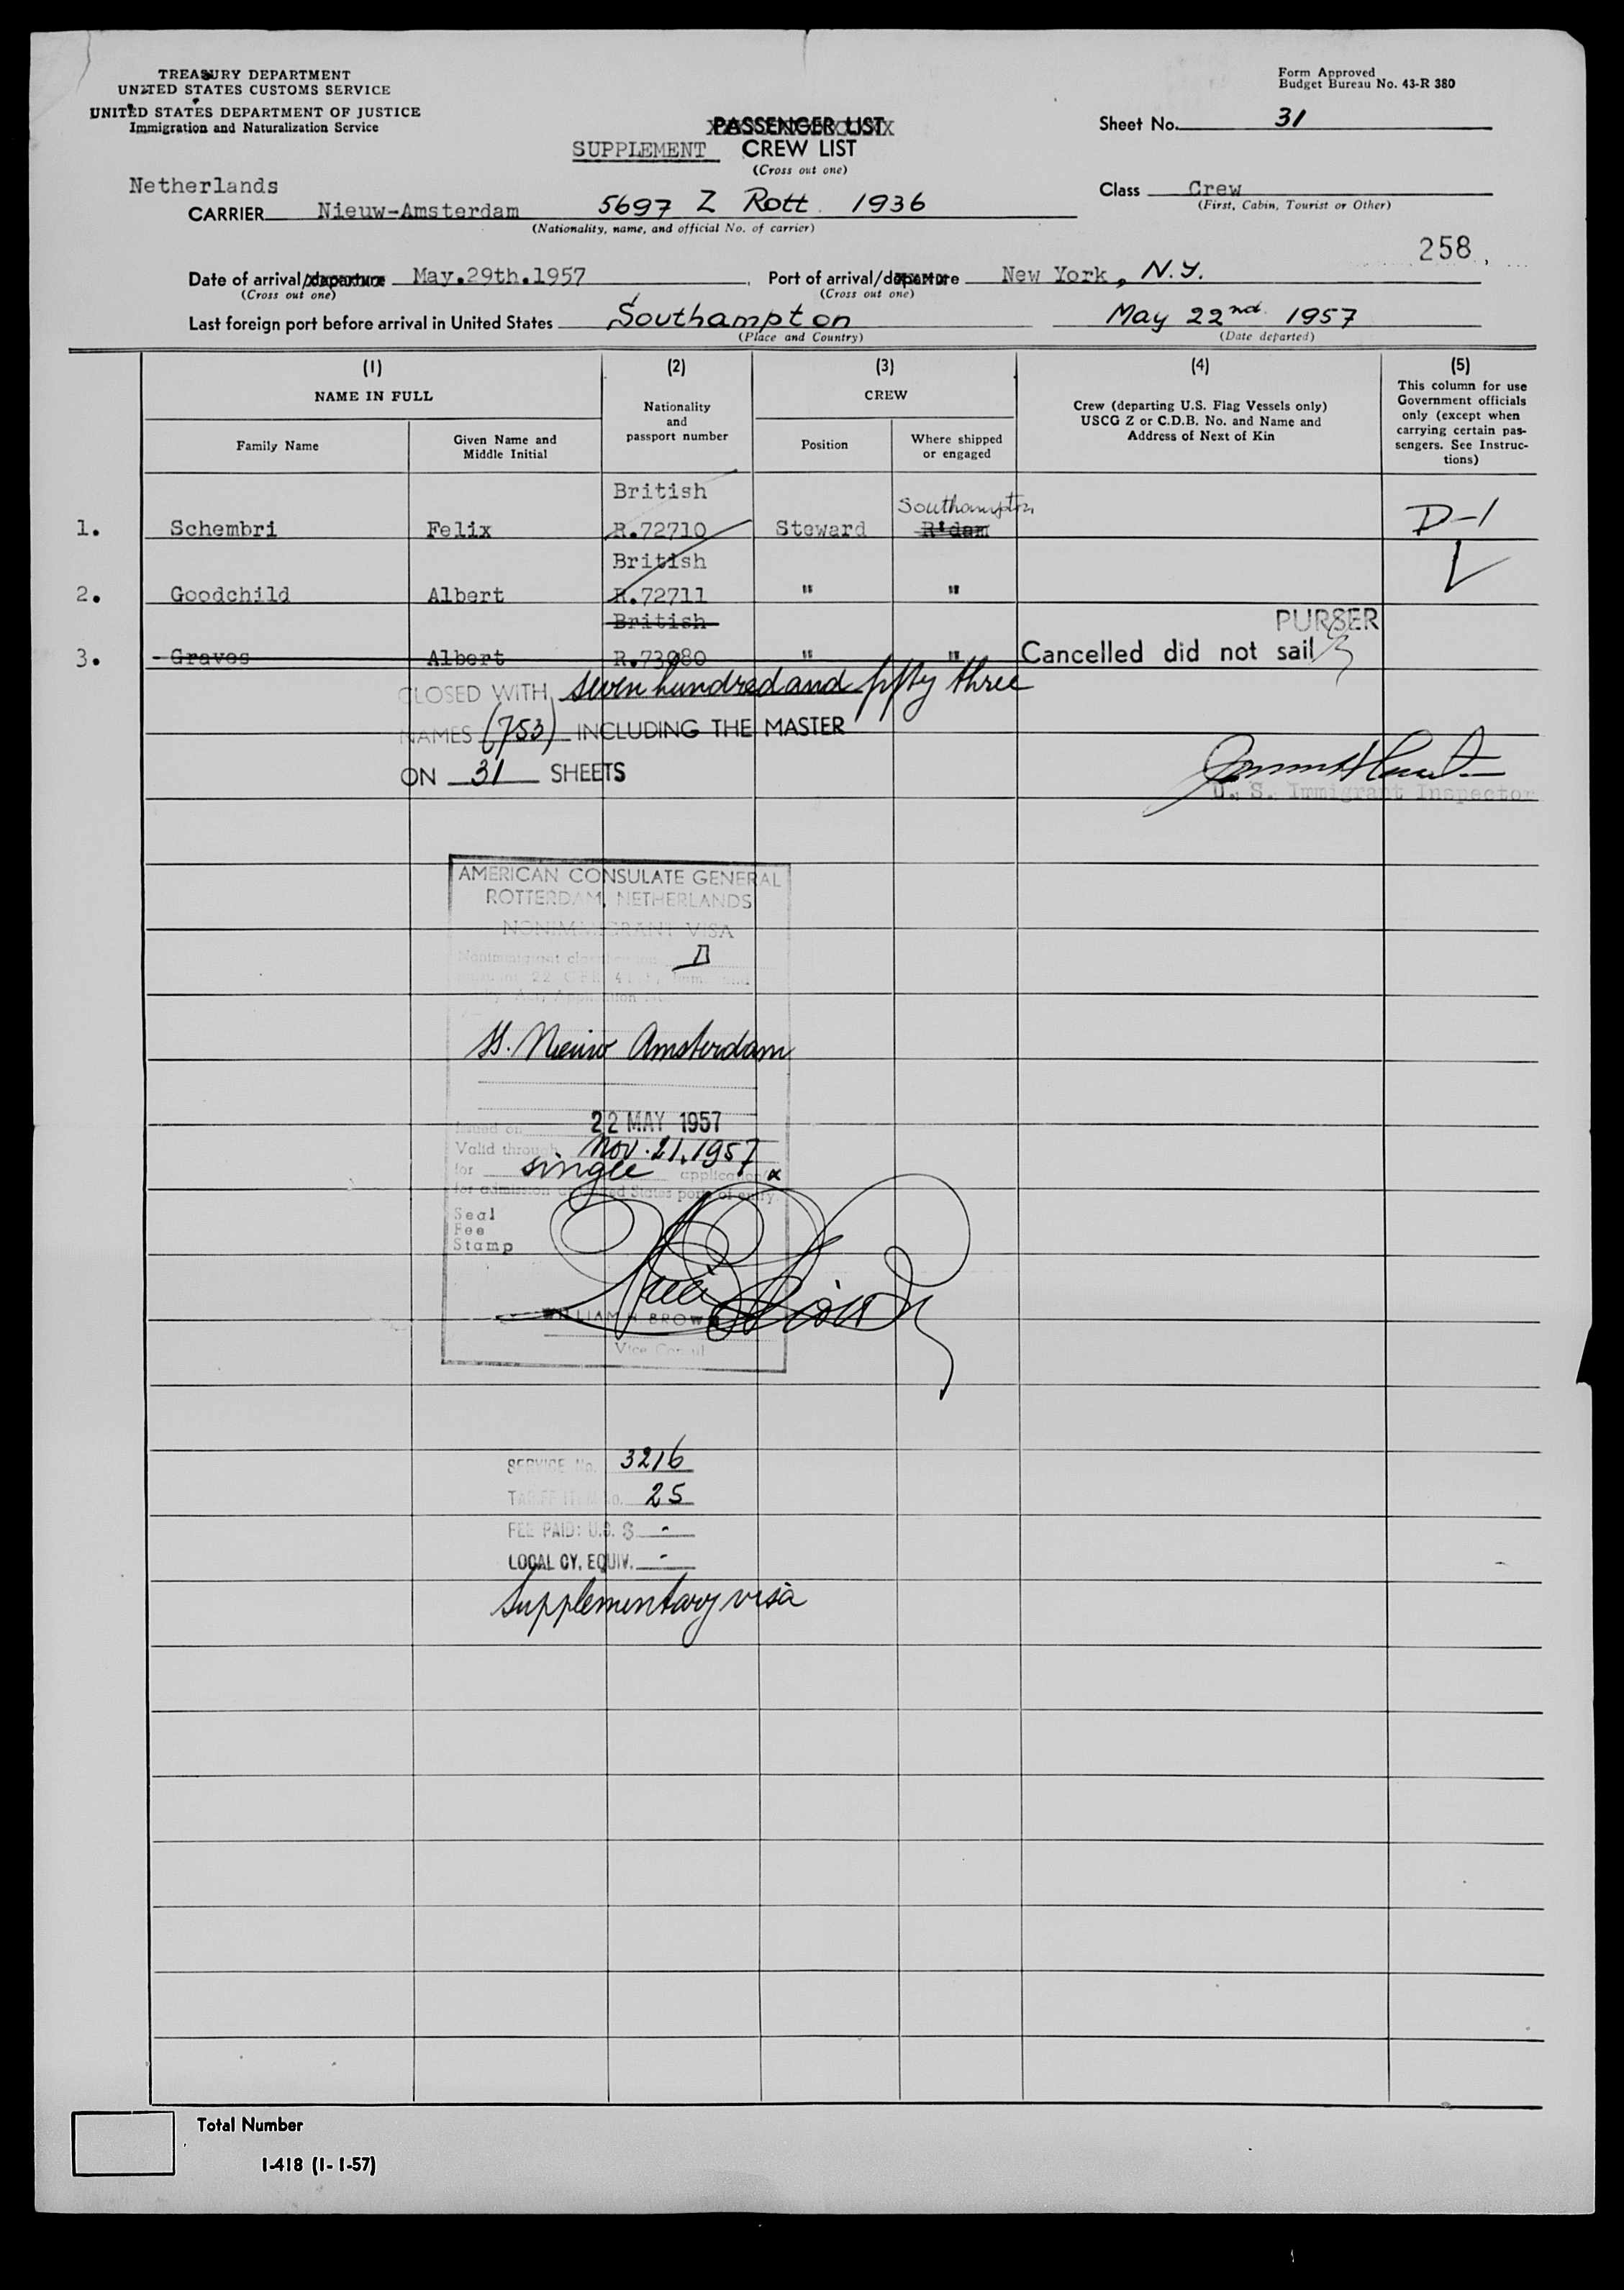 TREASURY DEPARTMENT
UNITED STATES CUSTOMS SERVICE
UNITED STATES DEPARTMENT OF JUSTICE
Immigration and Naturalization Service
Form Approved
Budget Bureau No. 43-R 380
PASSENGER LIST
SUPPLEMENT CREW LIST
(Cross out one)
Sheet No. 31
Netherlands
CARRIER Nieuw-Amsterdam 5697 Z Rott. 1936
(Nationality, name, and official No. of carrier)
Class Crew
(First, Cabin, Tourist or Other)
258
Date of arrival/departure May.29th.1957
(Cross out one)
Port of arrival/departure New York, N.Y.
(Cross out one)
Last foreign port before arrival in United States Southampton May 22nd 1957
(Place and Country) (Date departed)
(1) (2) (3) (4) (5)
NAME IN FULL
Family Name
Given Name and
Middle Initial
Nationality
and
passport number
CREW
Position
Where shipped
or engaged
Crew (departing U.S. Flag Vessels only)
USCG Z or C.D.B. No. and Name and
Address of Next of Kin
This column for use
Government officials
only (except when
carrying certain pas-
sengers. See Instruc-
tions)
British Southampton
1. Schembri Felix R.72710 Steward R'dam D-1
British
2. Goodchild Albert R.72711 " "
British PURSER
3. Graves Albert R.73080 " " Cancelled did not sail
CLOSED WITH seven hundred and fifty three
NAMES (753) INCLUDING THE MASTER
ON 31 SHEETS
U. S. Immigrant Inspector
AMERICAN CONSULATE GENERAL
ROTTERDAM, NETHERLANDS
NONIMMIGRANT VISA
Nonimmigrant classification D
22 CFR 41
Application
SS. Nieuw Amsterdam
Issued on 22 MAY 1957
Valid through Nov. 21, 1957
for single application
for admission at United States ports of entry
Seal
Fee
Stamp
WILLIAM H BROWN
Vice Consul
SERVICE No. 3216
TARIFF ITEM No. 25
FEE PAID: U.S. $ -
LOCAL CY. EQUIV. -
Supplementary visa
Total Number
I-418 (1-1-57)